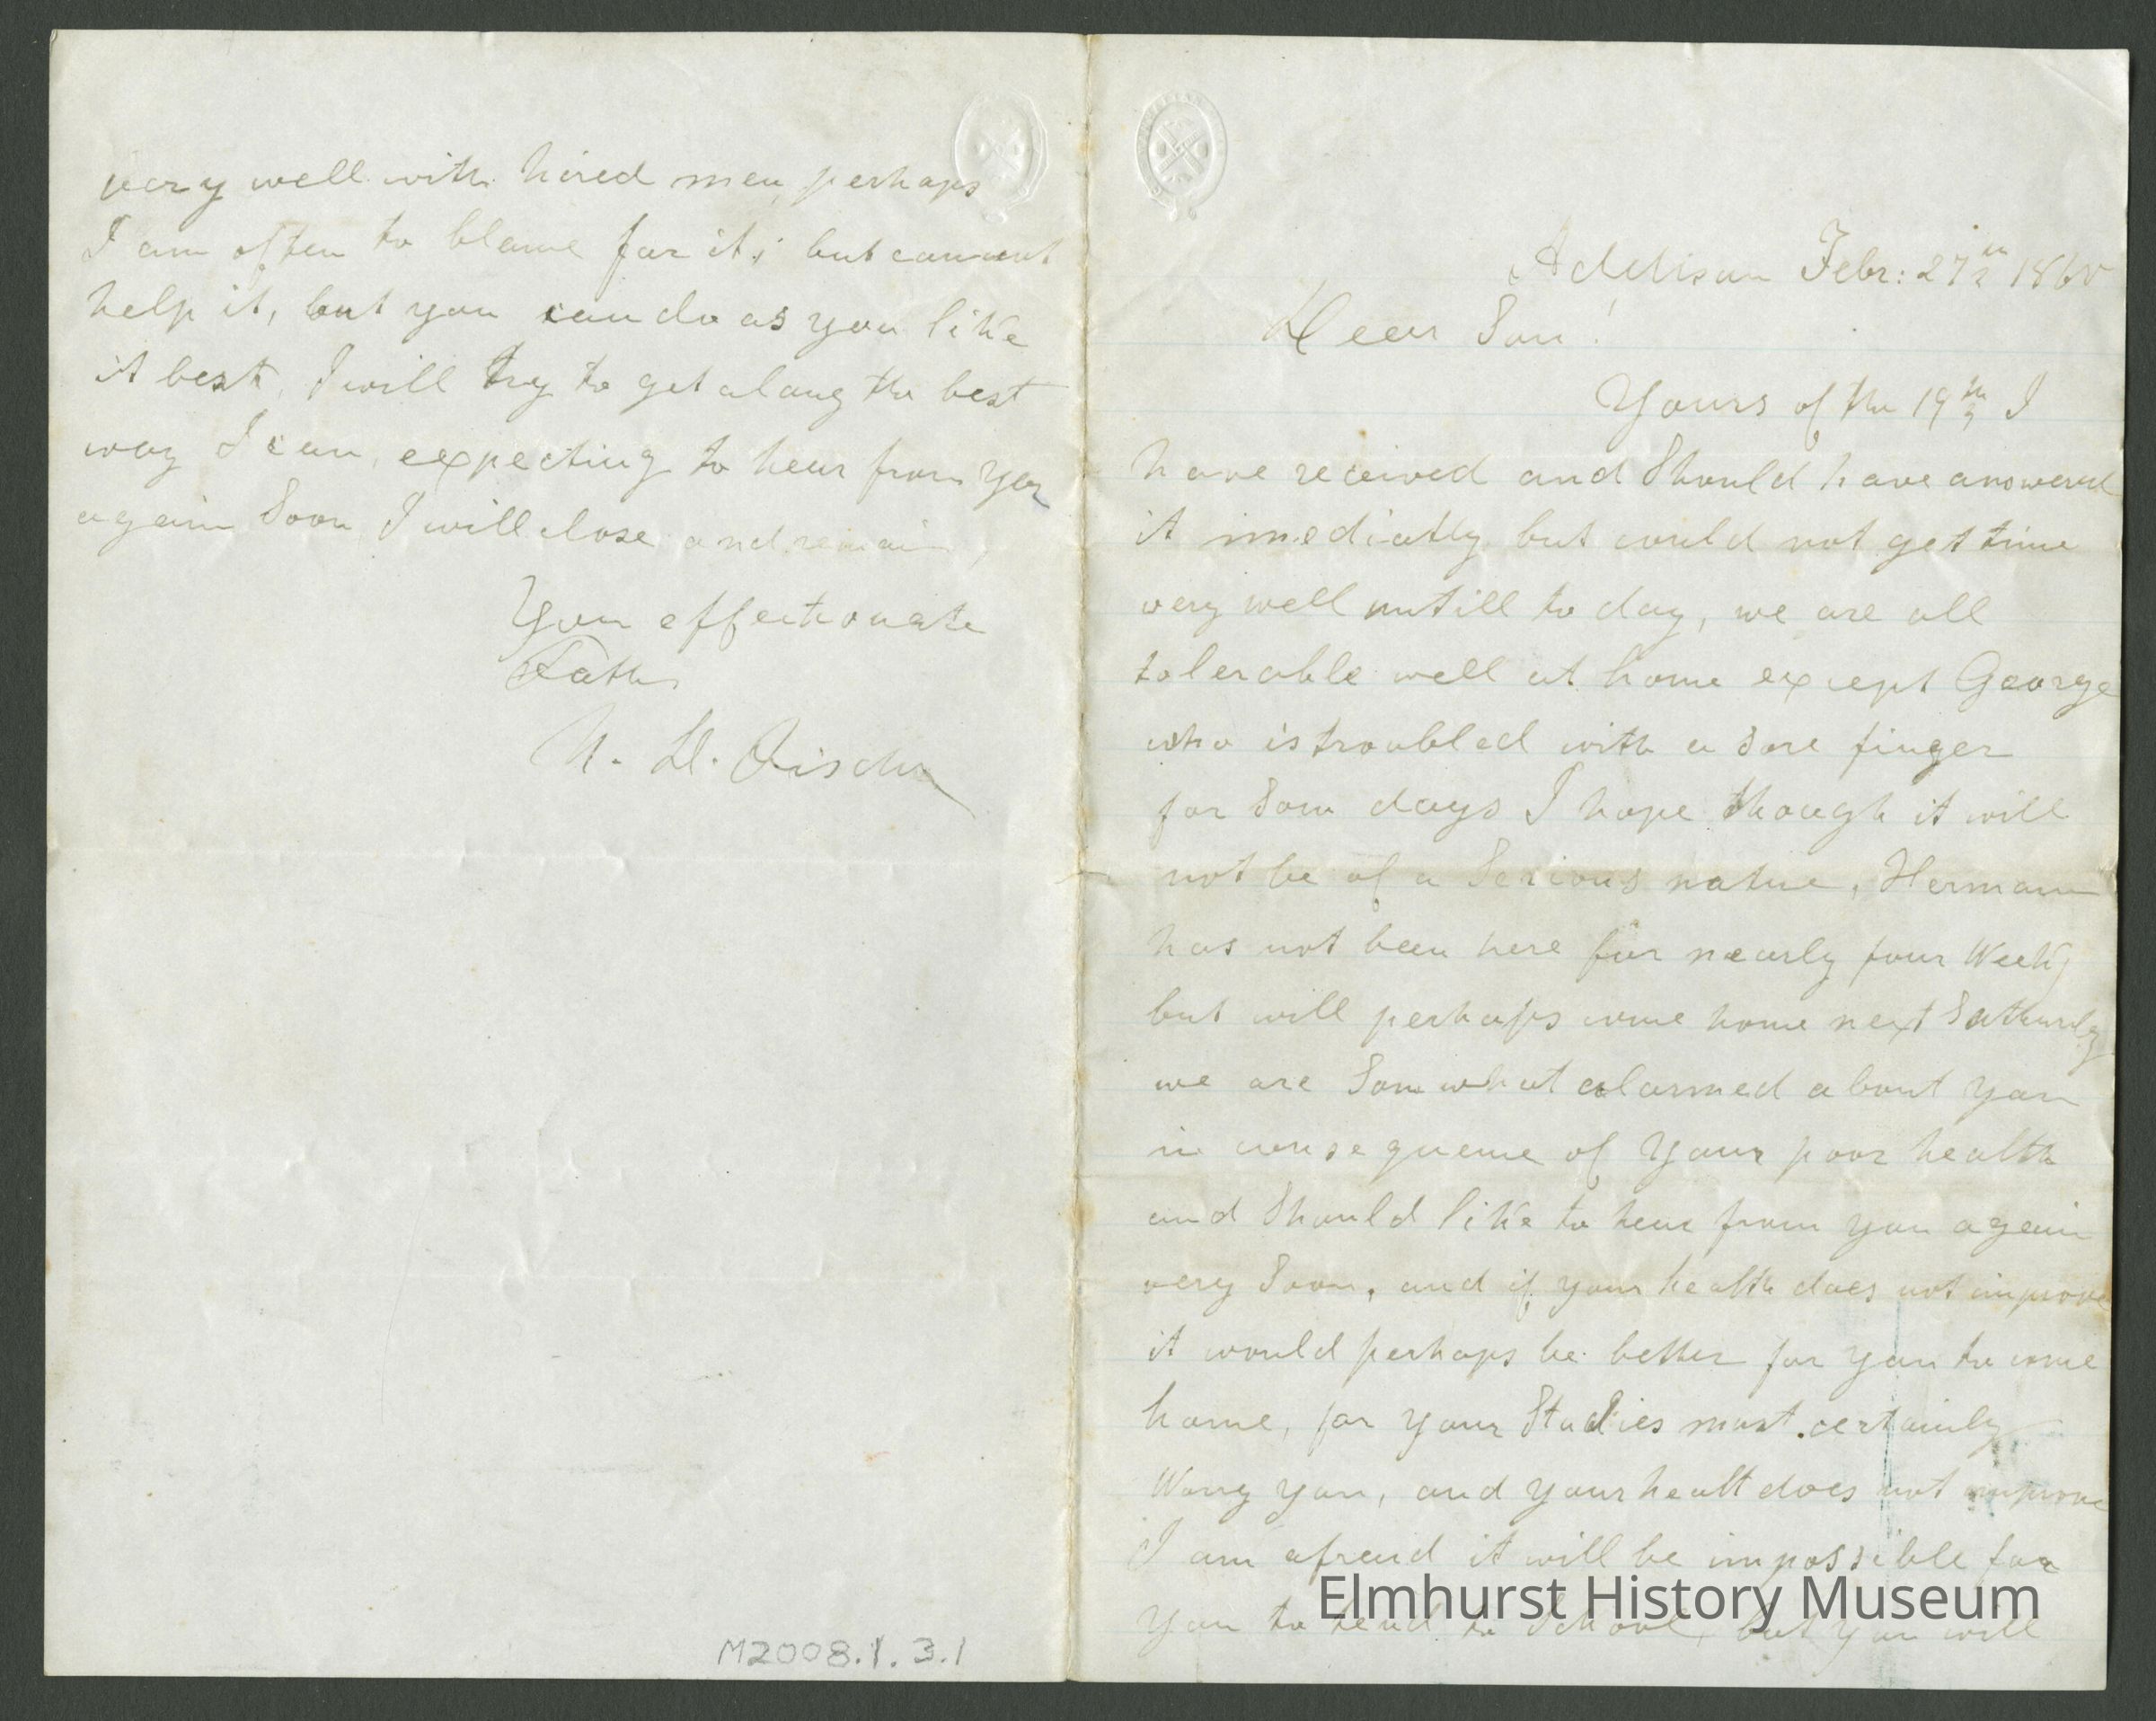 Addison Febr: 27th 1860
Dear Son!
Yours of the 19th I
have received and Should have answered
it imediatly but could not get time
very well untill to day, we are all
tolerable well at home except George
who is troubled with a Sore finger
for Som days I hope though it will
not be of a Serious nature, Hermann
has not been here for nearly four Weeks
but will perhaps come home next Sathurdy
we are Som what alarmed about you
in consequence of Your poor health
and Should like to hear from you again
very Soon, and if your health does not improve
it would perhaps be better for you to come
home, for your Studies must certainly
Worry you, and your healt does not improve
I am afraid it will be impossible for
you to tend to School, but you will
very well with hired men, perhaps
I am often to blame for it; but cannot
help it, but you can do as you like
it best, I will try to get along the best
way I can, expecting to hear from you
again Soon I will close and remain,
Your affectionate
Father
H. D. Fischer
M2008.1.3.1
Elmhurst History Museum